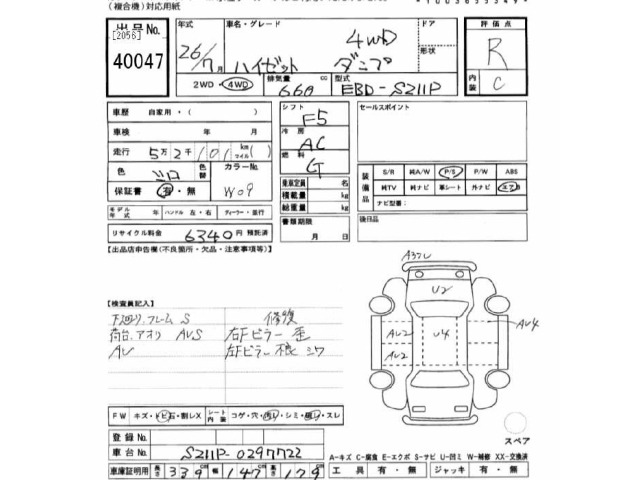 (複合機)対応用紙
出品No.
[2056]
40047
年式
26/7月
車名・グレード
ハイゼット 4WD ダンプ
ドア
形状
評価点
R
内装
C
2WD・4WD
排気量
660 cc
型式
EBD-S211P
車歴 自家用・( )
車検 年 月
走行 5万2千101 km マイル( )
色 シロ 色替 カラーNo. W09
保証書 有・無
モデル年式 年 ハンドル 左・右 ディーラー・並行
リサイクル料金 6340 円 預託済
シフト
F5
冷房
AC
燃料
G
乗車定員 名
積載量 kg
総重量 kg
書類期限
月 日
セールスポイント
装備品
S/R 純A/W P/S P/W ABS
純TV 純ナビ 革シート 外ナビ エアB
ナビ型番:
後日品
【出品店申告欄(不良箇所・欠品・注意事項等)】
【検査員記入】
下廻り、フレーム S
荷台、アオリ AUS
AU
修復
右Fピラー 歪
左Fピラー 根 シワ
A32U
U2
AU2
U4
AU4
AU2
スペア
FW キズ・トビ石・割レX シート内装 コゲ・穴・汚レ・シミ・破レ・スレ
登録No.
車台No. S211P-0297722
車庫証明用 長さ 339 cm 幅 147 cm 高さ 179 cm
A-キズ C-腐食 E-エクボ S-サビ U-凹ミ W-補修 XX-交換済
工具 有・無 ジャッキ 有・無